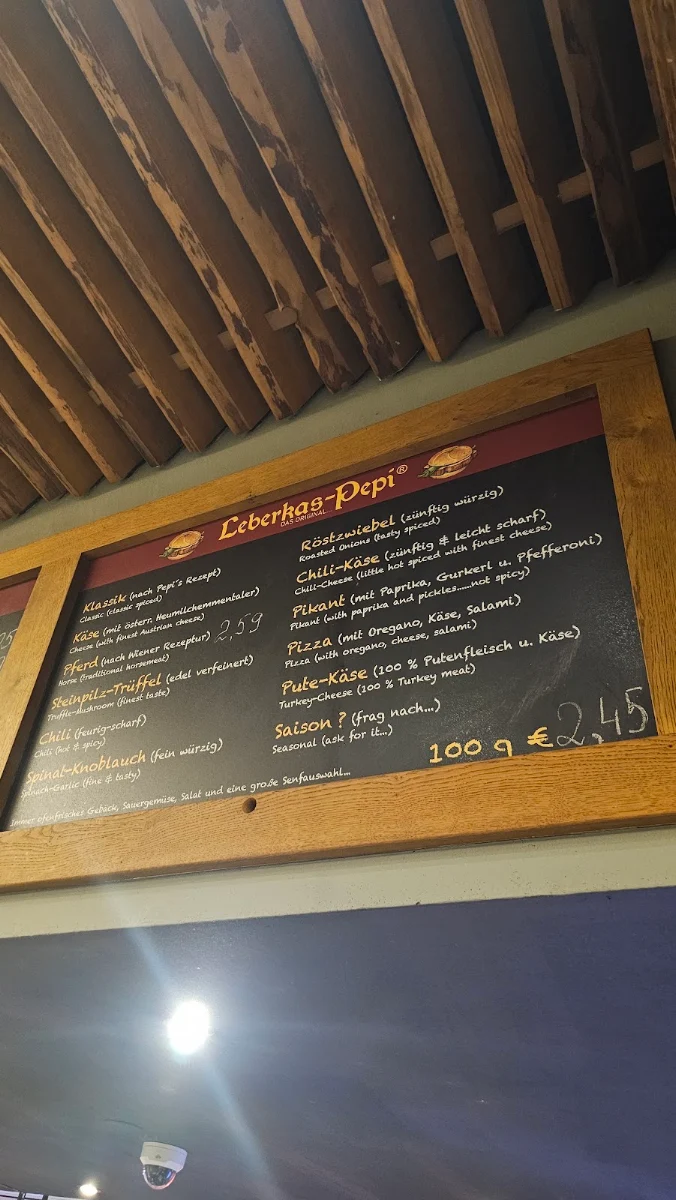 Leberkas-Pepi®
DAS ORIGINAL
Klassik (nach Pepi's Rezept)
Classic (classic spiced)
Käse (mit österr. Heumilchemmentaler)
Cheese (with finest Austrian cheese)
Pferd (nach Wiener Rezeptur) 2,59
Horse (traditional horsemeat)
Steinpilz-Trüffel (edel verfeinert)
Truffle-Mushroom (finest taste)
Chili (feurig-scharf)
Chili (hot & spicy)
Spinat-Knoblauch (fein würzig)
Spinach-Garlic (fine & tasty)
Immer ofenfrisches Gebäck, Sauergemüse, Salat und eine große Senfauswahl...
Röstzwiebel (zünftig würzig)
Roasted Onions (tasty spiced)
Chili-Käse (zünftig & leicht scharf)
Chili-Cheese (little hot spiced with finest cheese)
Pikant (mit Paprika, Gurkerl u. Pfefferoni)
Pikant (with paprika and pickles.....not spicy)
Pizza (mit Oregano, Käse, Salami)
Pizza (with oregano, cheese, salami)
Pute-Käse (100 % Putenfleisch u. Käse)
Turkey-Cheese (100 % Turkey meat)
Saison ? (frag nach...)
Seasonal (ask for it...)
100 g € 2,45